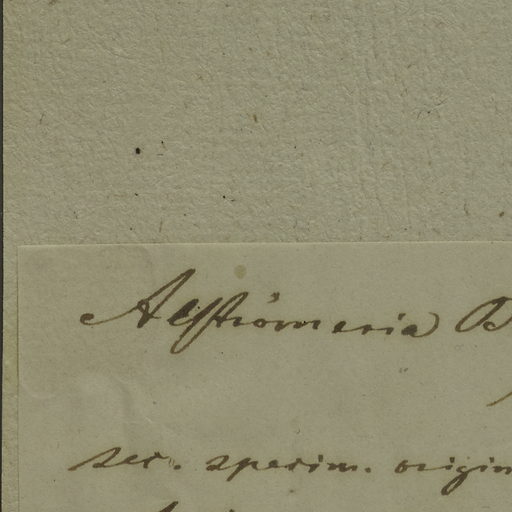 Alströmeria B
sec. specim. origin